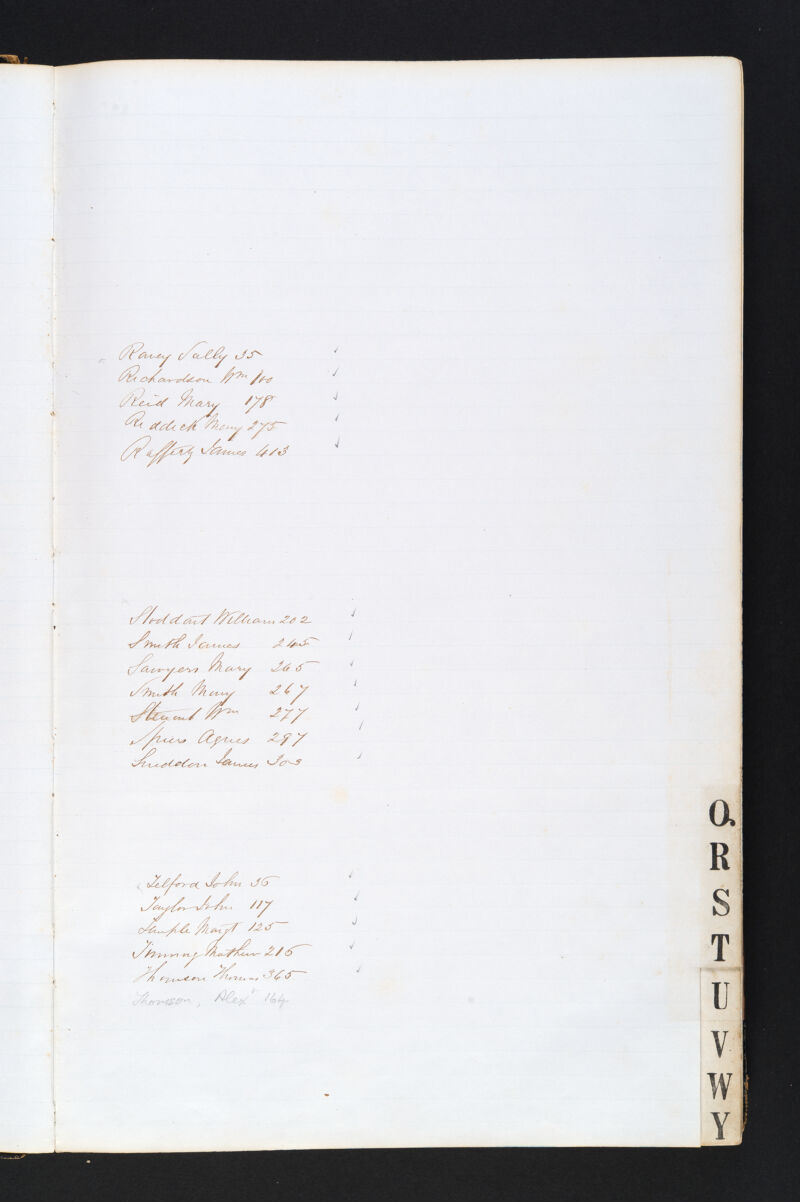 Raney Sally 35
Richardson Wm 100
Reid Mary 178
Riddick Mary 275
Rafferty James 413
Stoddart William 202
Smith James 245
Sawyers Mary 265
Smith Mary 267
Steuart Wm 277
Spiers Agnes 297
Sneddon James 303
Telford John 36
Taylor John 117
Temple Margt 125
Timming Mathew 216
Thomson Thomas 365
Thomson, Alexr 164
Q.
R
S
T
U
V
W
Y